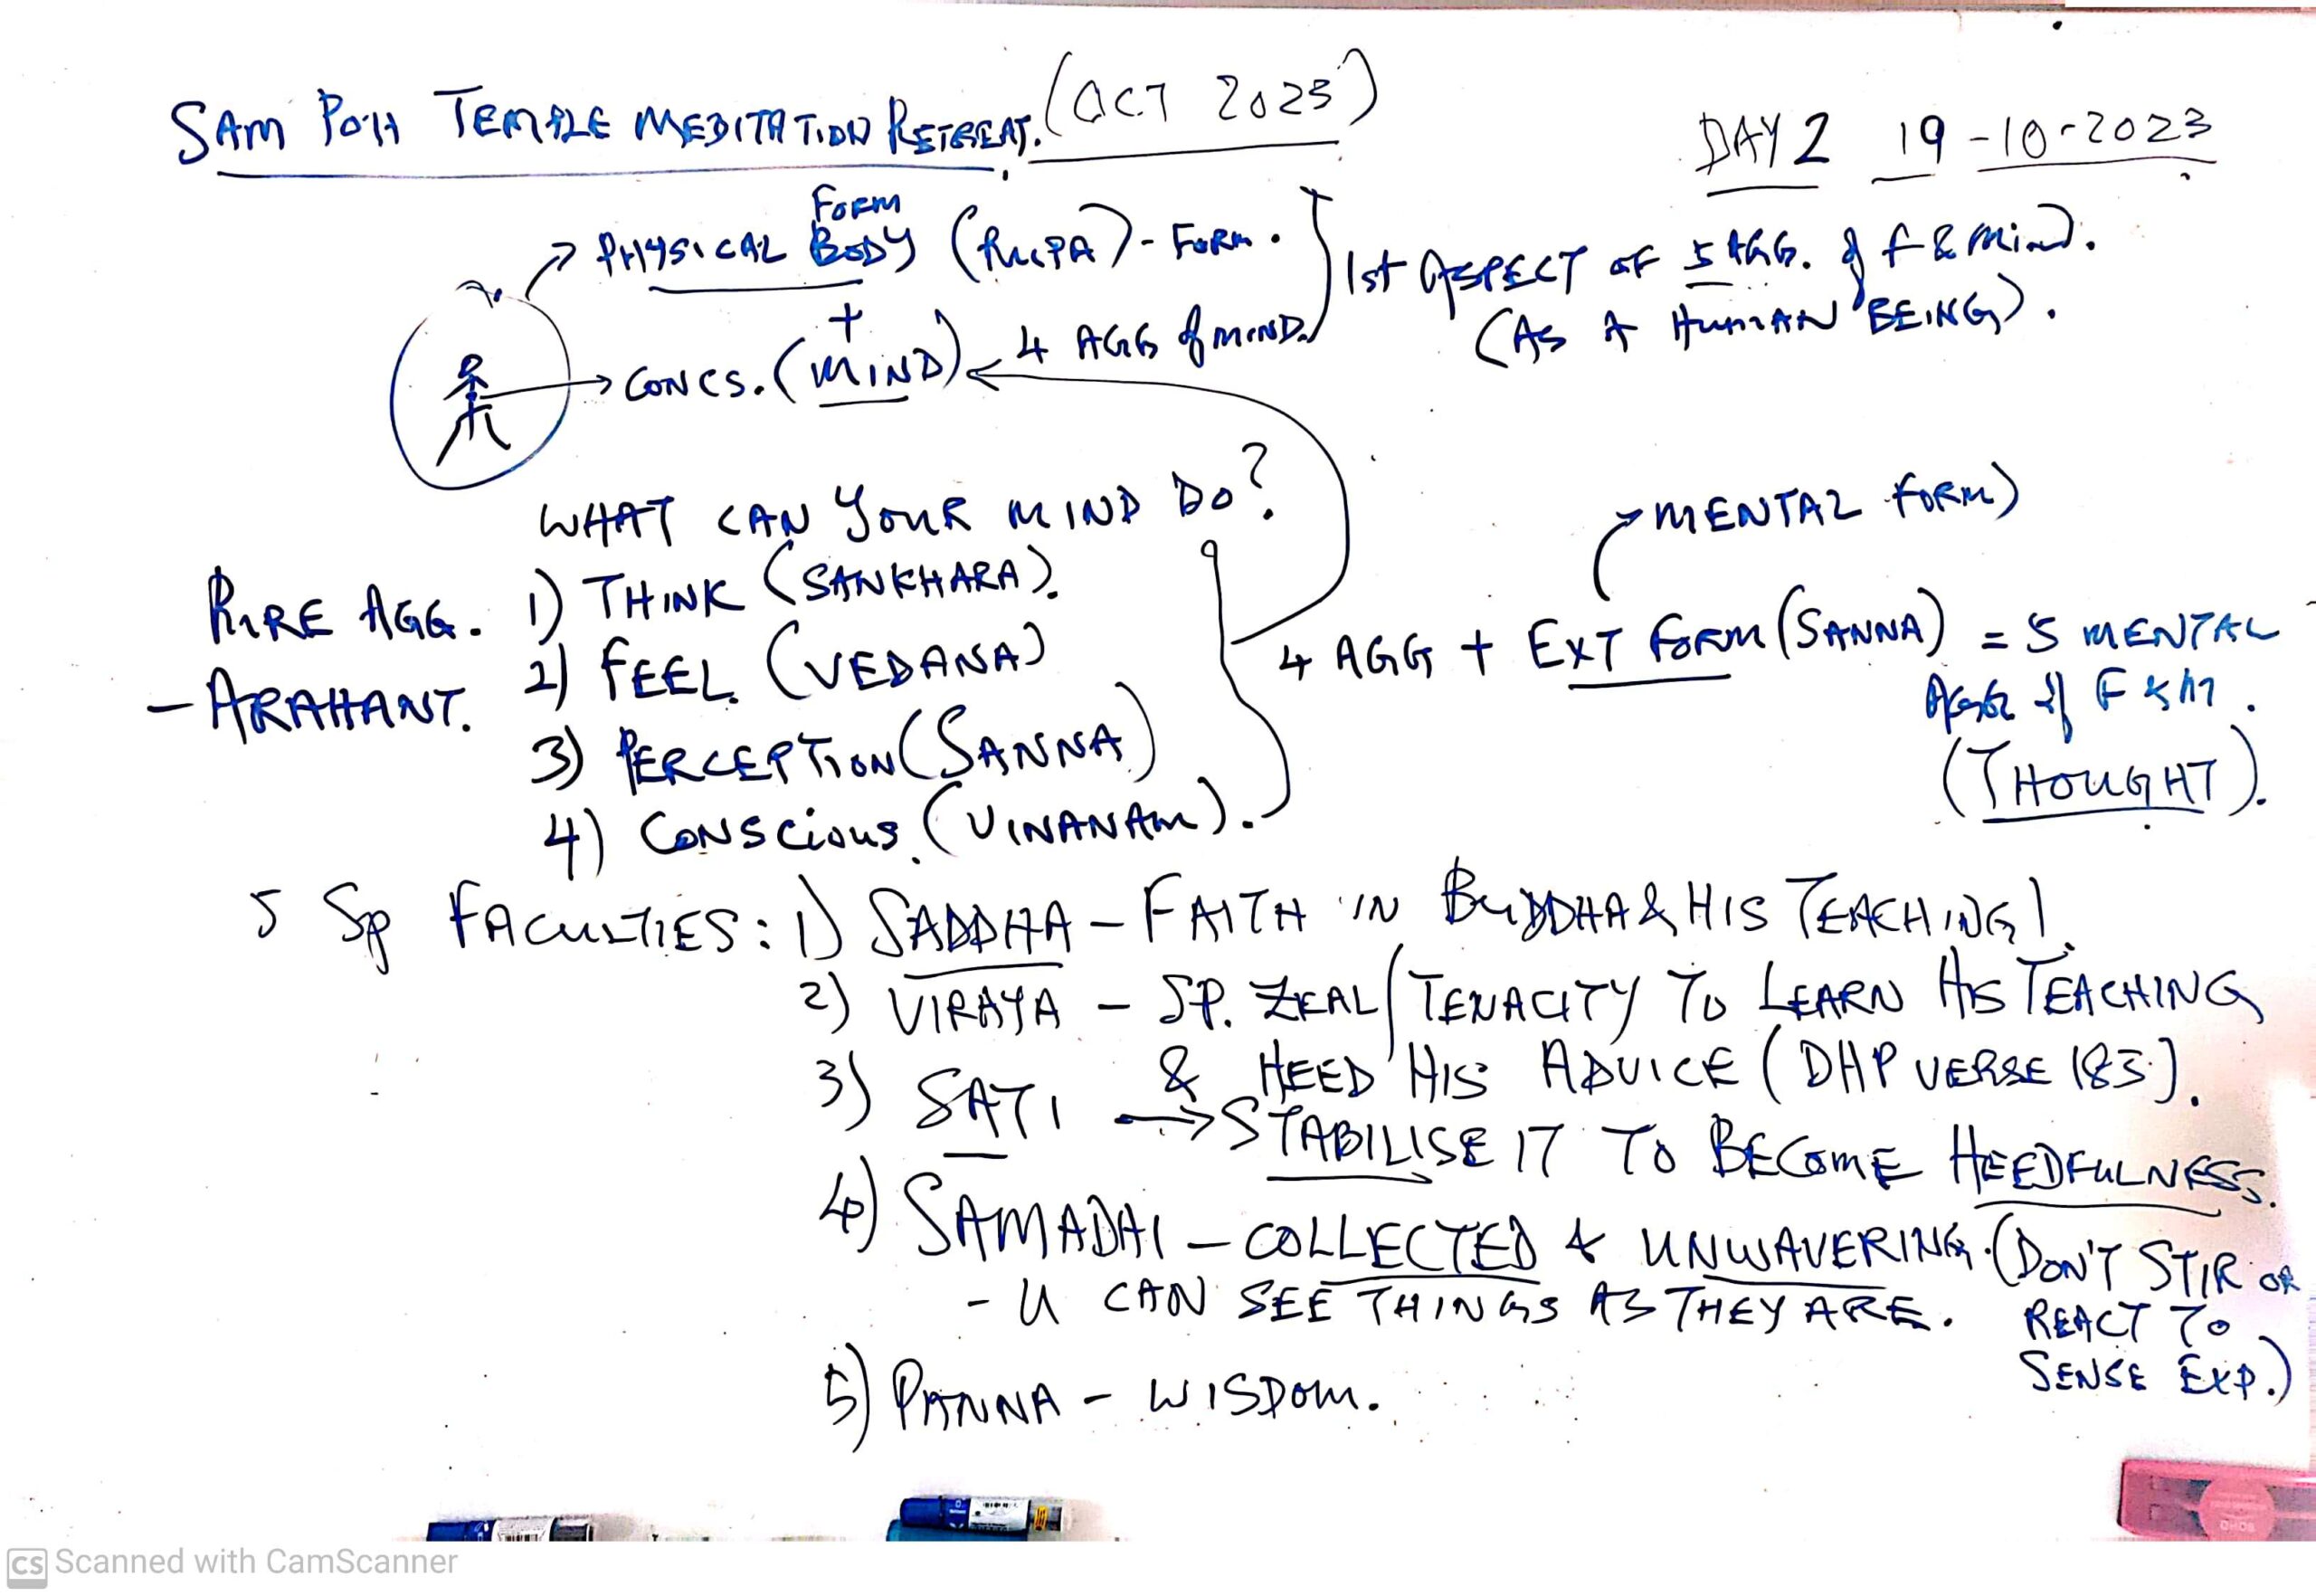 SAM POH TEMPLE MEDITATION RETREAT. (OCT 2023)
DAY 2 19-10-2023
FORM
PHYSICAL BODY (RUPA) - FORM.
+
CONCS. (MIND) 4 AGG of MIND.
1st ASPECT OF 5 AGG. of F & MIND.
(AS A HUMAN BEING).
WHAT CAN YOUR MIND DO?
PURE AGG.
- ARAHANT.
1) THINK (SANKHARA).
2) FEEL. (VEDANA)
3) PERCEPTION (SANNA)
4) CONSCIOUS. (VINANAM).
MENTAL FORM)
4 AGG + EXT FORM (SANNA) = 5 MENTAL
AGG of F & M.
(THOUGHT).
5 SP FACULTIES: 1) SADDHA - FAITH IN BUDDHA & HIS TEACHING).
2) VIRAYA - SP. ZEAL/TENACITY TO LEARN HIS TEACHING
& HEED HIS ADVICE (DHP VERSE 183).
3) SATI → STABILISE IT TO BECOME HEEDFULNESS.
4) SAMADHI - COLLECTED & UNWAVERING. (DON'T STIR OR
REACT TO
SENSE EXP.)
- U CAN SEE THINGS AS THEY ARE.
5) PANNA - WISDOM.
CS Scanned with CamScanner